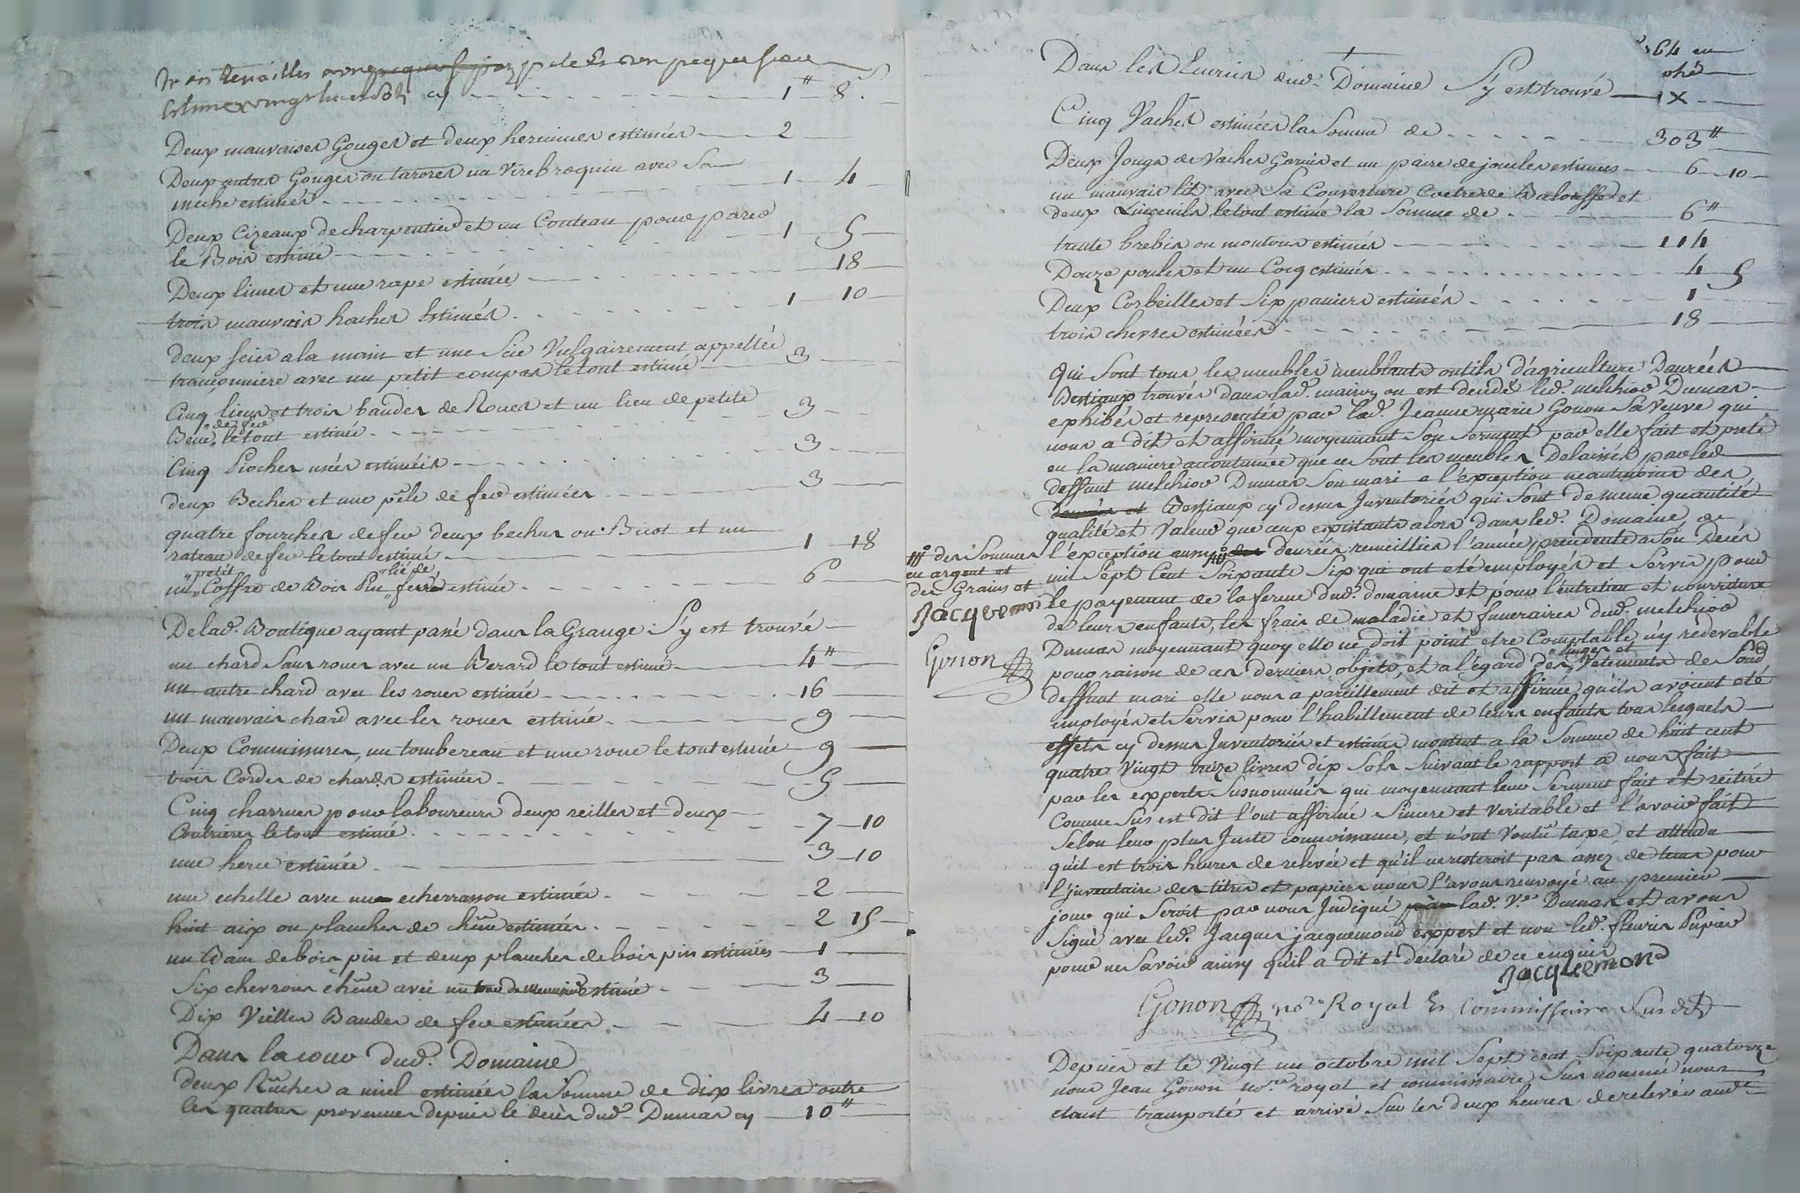 trois tenailles
estimé vingt huit sols cy 1# 8s
Deux mauvaises Gouges et deux hermines estimées 2
Deux autres Gouges ou tarores un Virebroquin avec Sa
mêche estimés 1 4
Deux Cizeaux de charpentier et un Couteau pour parer
le Bois estimé 1 5
Deux limes et une rape estimée 18
trois mauvais haches Estimés 1 10
deux scies a la main et une Scie Vulgairement appellée
tranconniere avec un petit compas le tout estimé 3
Cinq liens et trois bandes de Roues et un lien de petite
Bene de fer le tout estimé 3
Cinq Pioches usées estimées 3
deux Beches et une pêle de fer estimées 3
quatre fourches de fer deux beches ou Bicot et un
rateau de fer le tout estimé 1 18
un petit Coffre de Bois Pin lié de fer estimé 6
De lad. Boutique ayant passé dans la Grange S'y est trouvé
un chard Sans roues avec un Berard le tout estimé 4#
un autre chard avec les roues estimé 16
un mauvais chard avec les roues estimé 9
Deux Commissures, un tombereau et une roue le tout estimé 9
trois Cordes de chards estimées 5
Cinq charrues pour laboureurs deux reilles et deux
Coutrieres le tout estimé 7 10
une herce estimée 3 10
une echelle avec un echerasson estimée 2
huit aix ou planches de chêne estimées 2 15
un de bois pin et deux planches de bois pin estimées 1
Six chevrons chêne avec un estimé 3
Dix Vielles Bandes de fer estimées 4 10
Dans la cour dud. Domaine
deux Rûches a miel estimées la Somme de dix livres outre
les quatres provenues depuis le décès dud. Dumas cy 10#
64 eu
1X
Dans les Ecuries dud. Domaine S'y est trouvé
Cinq Vaches estimées la Somme de 303#
Deux Jougs de Vaches Garnis et un paire de joules estimés 6 10
un mauvais lit avec Sa Couverture Coetre de Balouffe et
deux Linceuils le tout estimé la Somme de 6#
trante brebis ou moutons estimés 114
Douze poules et un Cocq estimés 4 5
Deux Corbeilles et Six paniers estimés 1
trois chevres estimées 18
Qui Sont tous les meubles meublants outils d'agriculture Danrées
Bestiaux trouvés dans lad. maison ou est decedé led. melchior Dumas
exhibés et representés par lad. Jeanne marie Gonon Sa Veuve qui
nous a dit et affirmé moyennant Son Serment par elle fait et preté
en la maniere accoutumée que ce Sont les meubles Delaissés par led.
deffunt melchior Dumas Son mari a l'exception neantmoins des
Bestiaux cy dessus Inventoriés qui Sont de meme quantité
qualité et Valeur que ceux existants alors dans led. Domaine de
l'exception aussy denrées recueillies l'année precedente a Son Decès
des Sommes
en argent et
des Grains et
Jacquemond
Gonon
mil Sept Cent Soixante Six qui ont eté employés et Servis pour
le payement de la ferme dud. domaine et pour l'entretien et nourriture
de leurs enfants, les frais de maladie et funeraires dud. melchior
Dumas moyennant quoy elle ne doit point etre Comptable n'y redevable
pour raison de ces derniers objets, et a l'egard des linges et Vetements de Sond.
deffunt mari elle nous a pareillement dit et affirmé qu'ils avoient eté
employés et Servis pour l'habillement de leurs enfants tous lesquels
effets cy dessus Inventoriés et estimés montent a la Somme de huit cent
quatre Vingt treize livres dix Sols Suivant le rapport a nous fait
par les experts Susnommés qui moyennant leur Serment fait et reiteré
Comme Sus est dit l'ont affirmé Sincere et Veritable et l'avoir fait
Selon leur plus Juste connoissance, et n'ont Voulu taxe et attendu
qu'il est trois heures de relevée et qu'il ne resteroit pas assez de tems pour
l'inventaire des titres et papiers nous l'avons renvoyé au premier
jour qui Seroit par nous Indiqué a lad. Ve Dumas et avons
Signé avec led. Jacques jacquemond expert et non led. fleury Pupier
pour ne Savoir ainsy qu'il a dit et declaré de ce enquis
Jacquemond
Gonon nore Royal Et Commissaire Susdt
Depuis et le Vingt un octobre mil Sept cent Soixante quatorze
nous Jean Gonon nore royal et commissaire Sus nommé nous
etant transporté et arrivé Sur les deux heures de relevée aud.